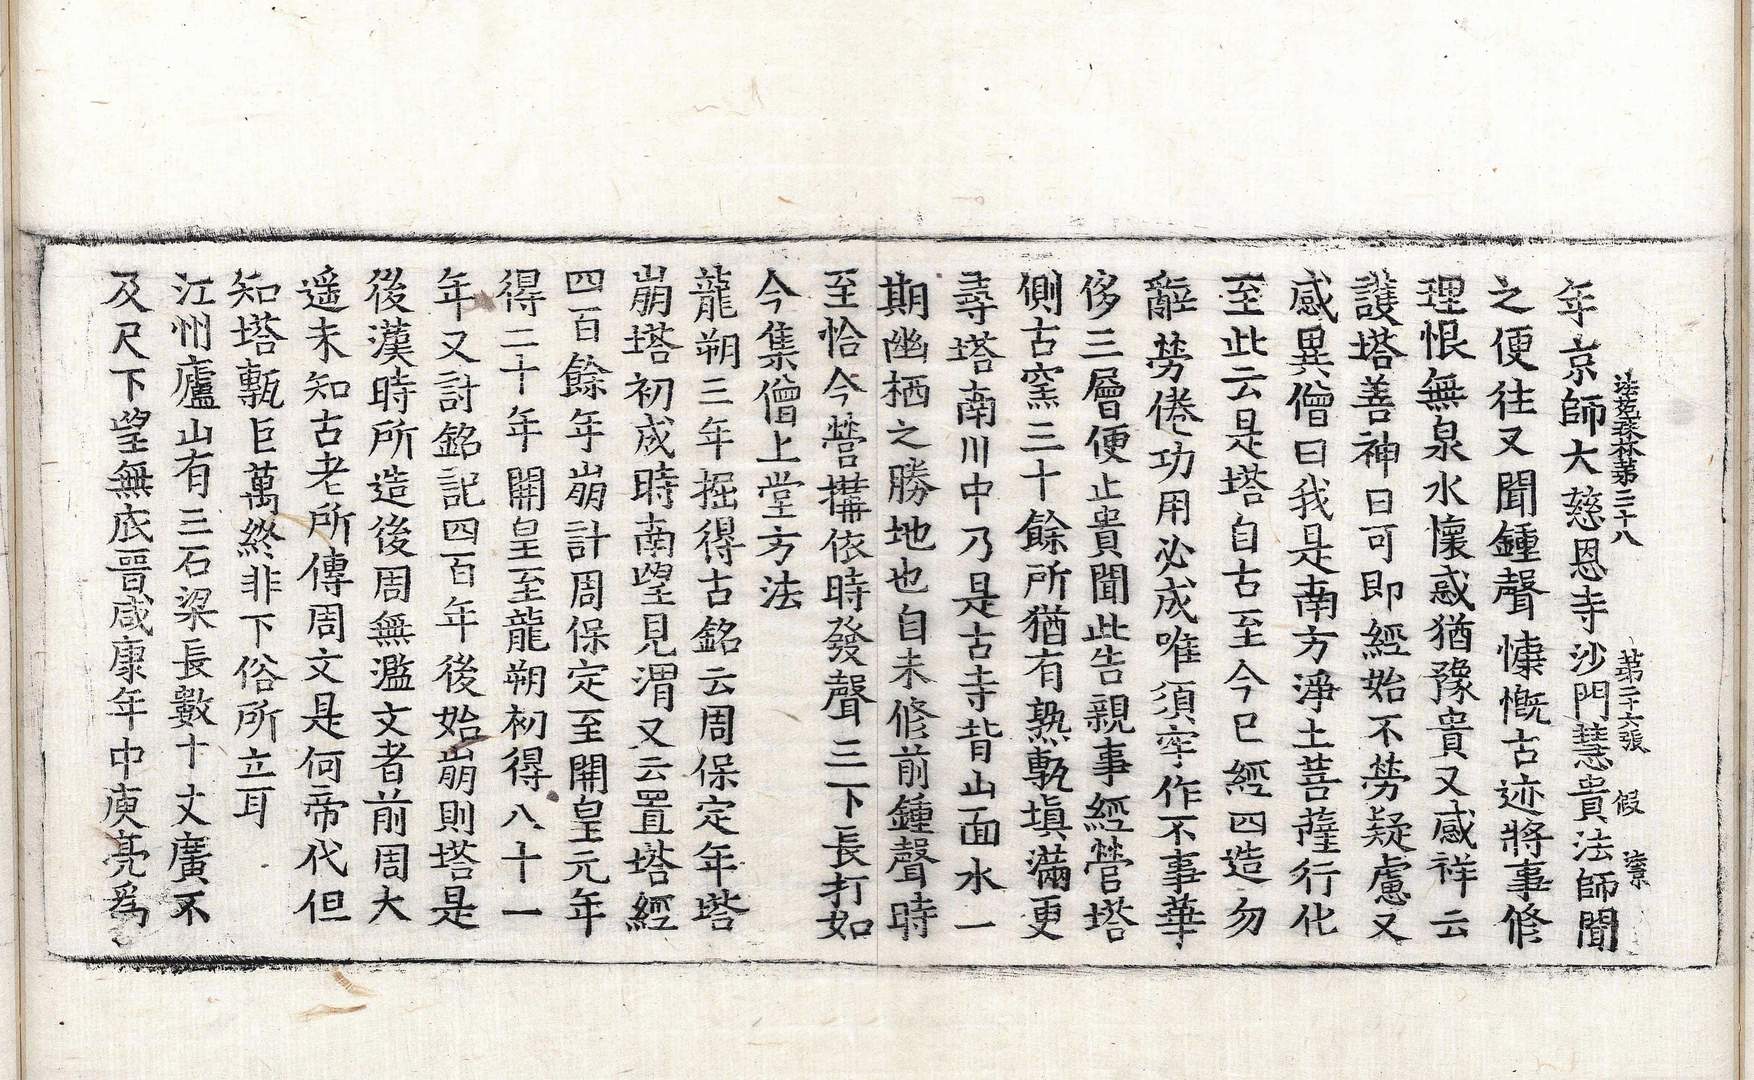 法苑珠林第三十八 第二十六張 假
年京師大慈恩寺沙門慧貴法師聞
之便往又聞鍾聲慷慨古迹將事修
理恨無泉水懷惑猶豫貴又感祥云
護塔善神曰可即經始不勞疑慮又
感異僧曰我是南方淨土菩薩行化
至此云是塔自古至今已經四造勿
辭勞倦功用必成唯須牢作不事華
侈三層便止貴聞此告親事經營塔
側古窯三十餘所猶有熟甎填滿更
尋塔南川中乃是古寺背山面水一
期幽栖之勝地也自未修前鍾聲時
至恰今營搆依時發聲三下長打如
今集僧上堂方法
龍朔三年掘得古銘云周保定年塔
崩塔初成時南望見渭又云置塔經
四百餘年崩計周保定至開皇元年
得二十年開皇至龍朔初得八十一
年又討銘記四百年後始崩則塔是
後漢時所造後周無濫文者前周大
遥未知古老所傳周文是何帝代但
知塔甎巨萬終非下俗所立耳
江州廬山有三石梁長數十丈廣不
及尺下望無底晉咸康年中庾亮爲